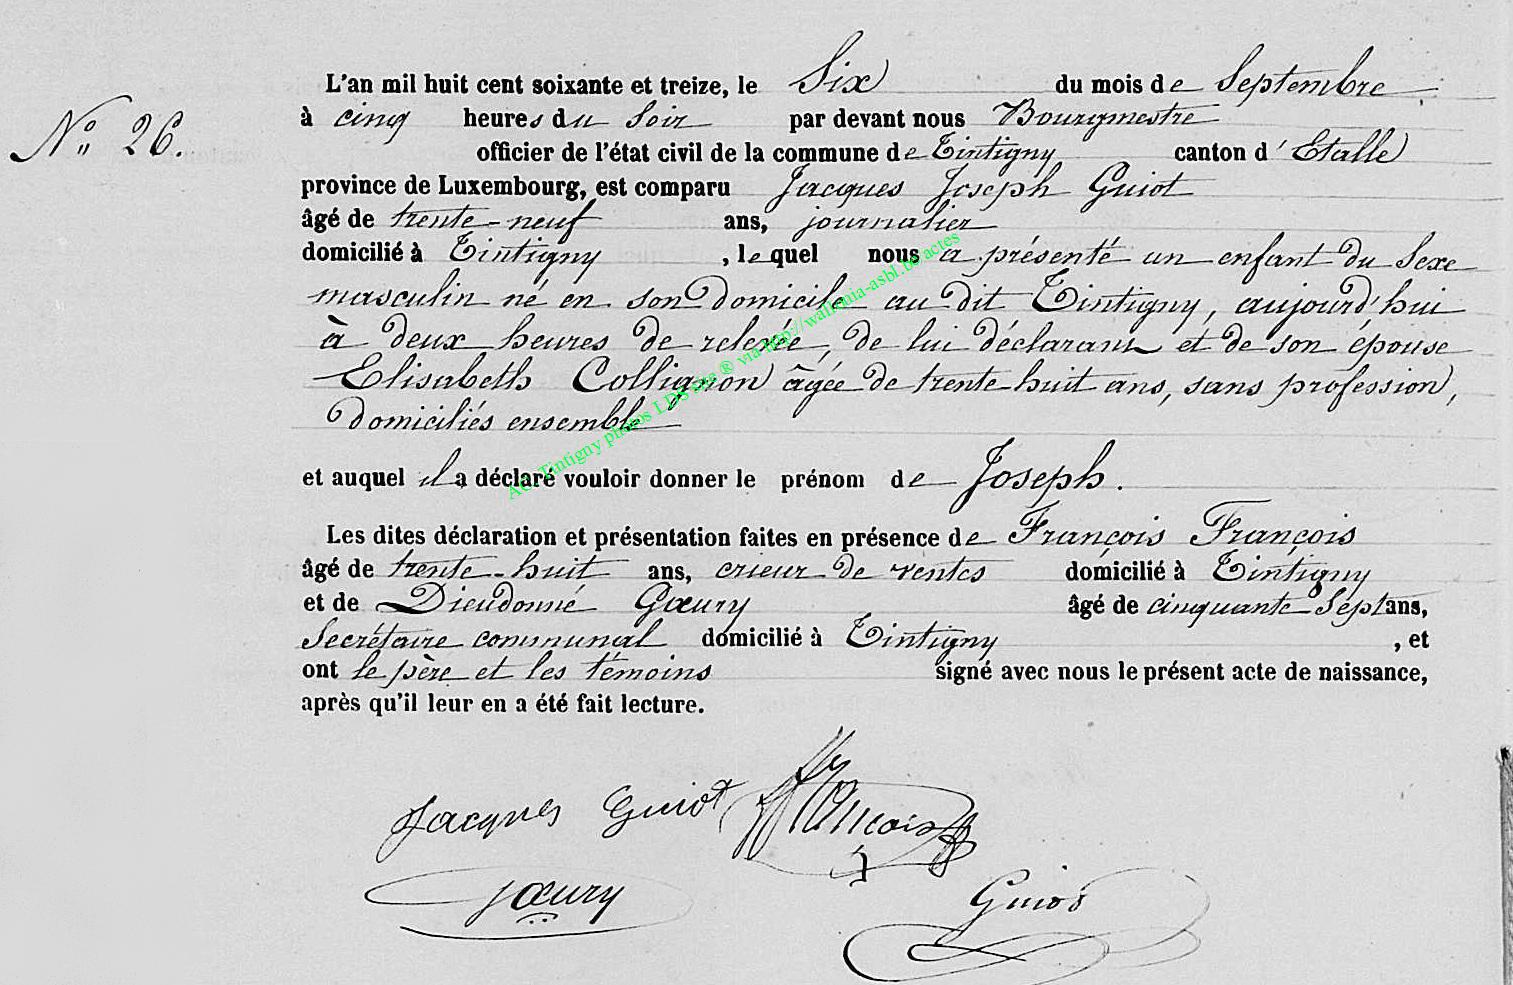 L'an mil huit cent soixante et treize, le Six du mois de Septembre
N° 26. à cinq heures du soir par devant nous Bourgmestre
officier de l'état civil de la commune de Tintigny canton d'Etalle
province de Luxembourg, est comparu Jacques Joseph Guiot
âgé de trente-neuf ans, journalier
domicilié à Tintigny, lequel nous a présenté un enfant du sexe
masculin né en son Domicile au dit Tintigny, aujourd'hui
à deux heures de relevée, de lui déclarant et de son épouse
Elisabeth Collignon âgée de trente-huit ans, sans profession,
Domiciliés ensemble
et auquel il a déclaré vouloir donner le prénom de Joseph.
Les dites déclaration et présentation faites en présence de François François
âgé de trente-huit ans, crieur de ventes domicilié à Tintigny
et de Dieudonné Gœury âgé de cinquante-sept ans,
Secrétaire communal domicilié à Tintigny, et
ont le père et les témoins signé avec nous le présent acte de naissance,
après qu'il leur en a été fait lecture.
Jacques Guiot
François
Gœury
Guiot